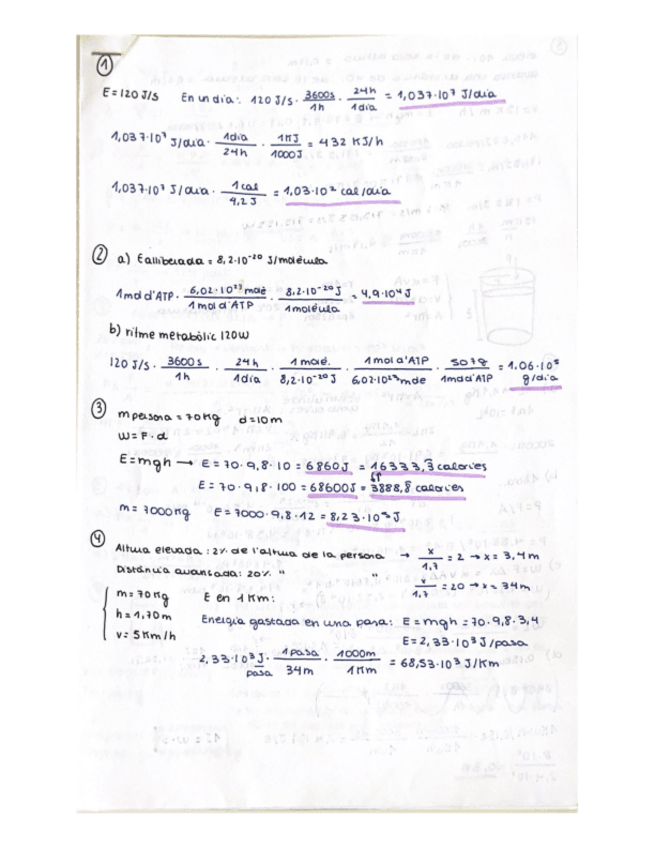 ①
E = 120 J/s En un dia: 120 J/s · 3600s/1h · 24h/1dia = 1,037·10⁷ J/dia
1,037·10⁷ J/dia · 1dia/24h · 1KJ/1000J = 432 KJ/h
1,037·10⁷ J/dia · 1cal/4,2J = 1,03·10² cal/dia
② a) Ealliberada = 8,2·10⁻²⁰ J/molècula
1mol d'ATP · 6,02·10²³ molè/1mol d'ATP · 8,2·10⁻²⁰J/1molècula = 4,9·10⁴ J
b) ritme metabòlic 120W
120 J/s · 3600s/1h · 24h/1dia · 1molè./8,2·10⁻²⁰J · 1mol d'ATP/6,02·10²³molè · 507g/1mol d'ATP = 1,06·10⁵ g/dia
③ mpersona = 70Kg d = 10m
W = F·d
E = mgh → E = 70·9,8·10 = 6860J = 16333,3 calories
E = 70·9,8·100 = 68600J = 3888,8 calories
m = 7000Kg E = 7000·9,8·12 = 8,23·10⁵ J
④ Altura elevada: 2% de l'altura de la persona → x/1,7 = 2 → x = 3,4m
Distància avançada: 20% " " x/1,7 = 20 → x = 34m
m = 70Kg E en 1 Km:
h = 1,70m Energia gastada en una passa: E = mgh = 70·9,8·3,4
v = 5Km/h E = 2,33·10³ J/pasa
2,33·10³ J/pasa · 1pasa/34m · 1000m/1Km = 68,53·10³ J/Km